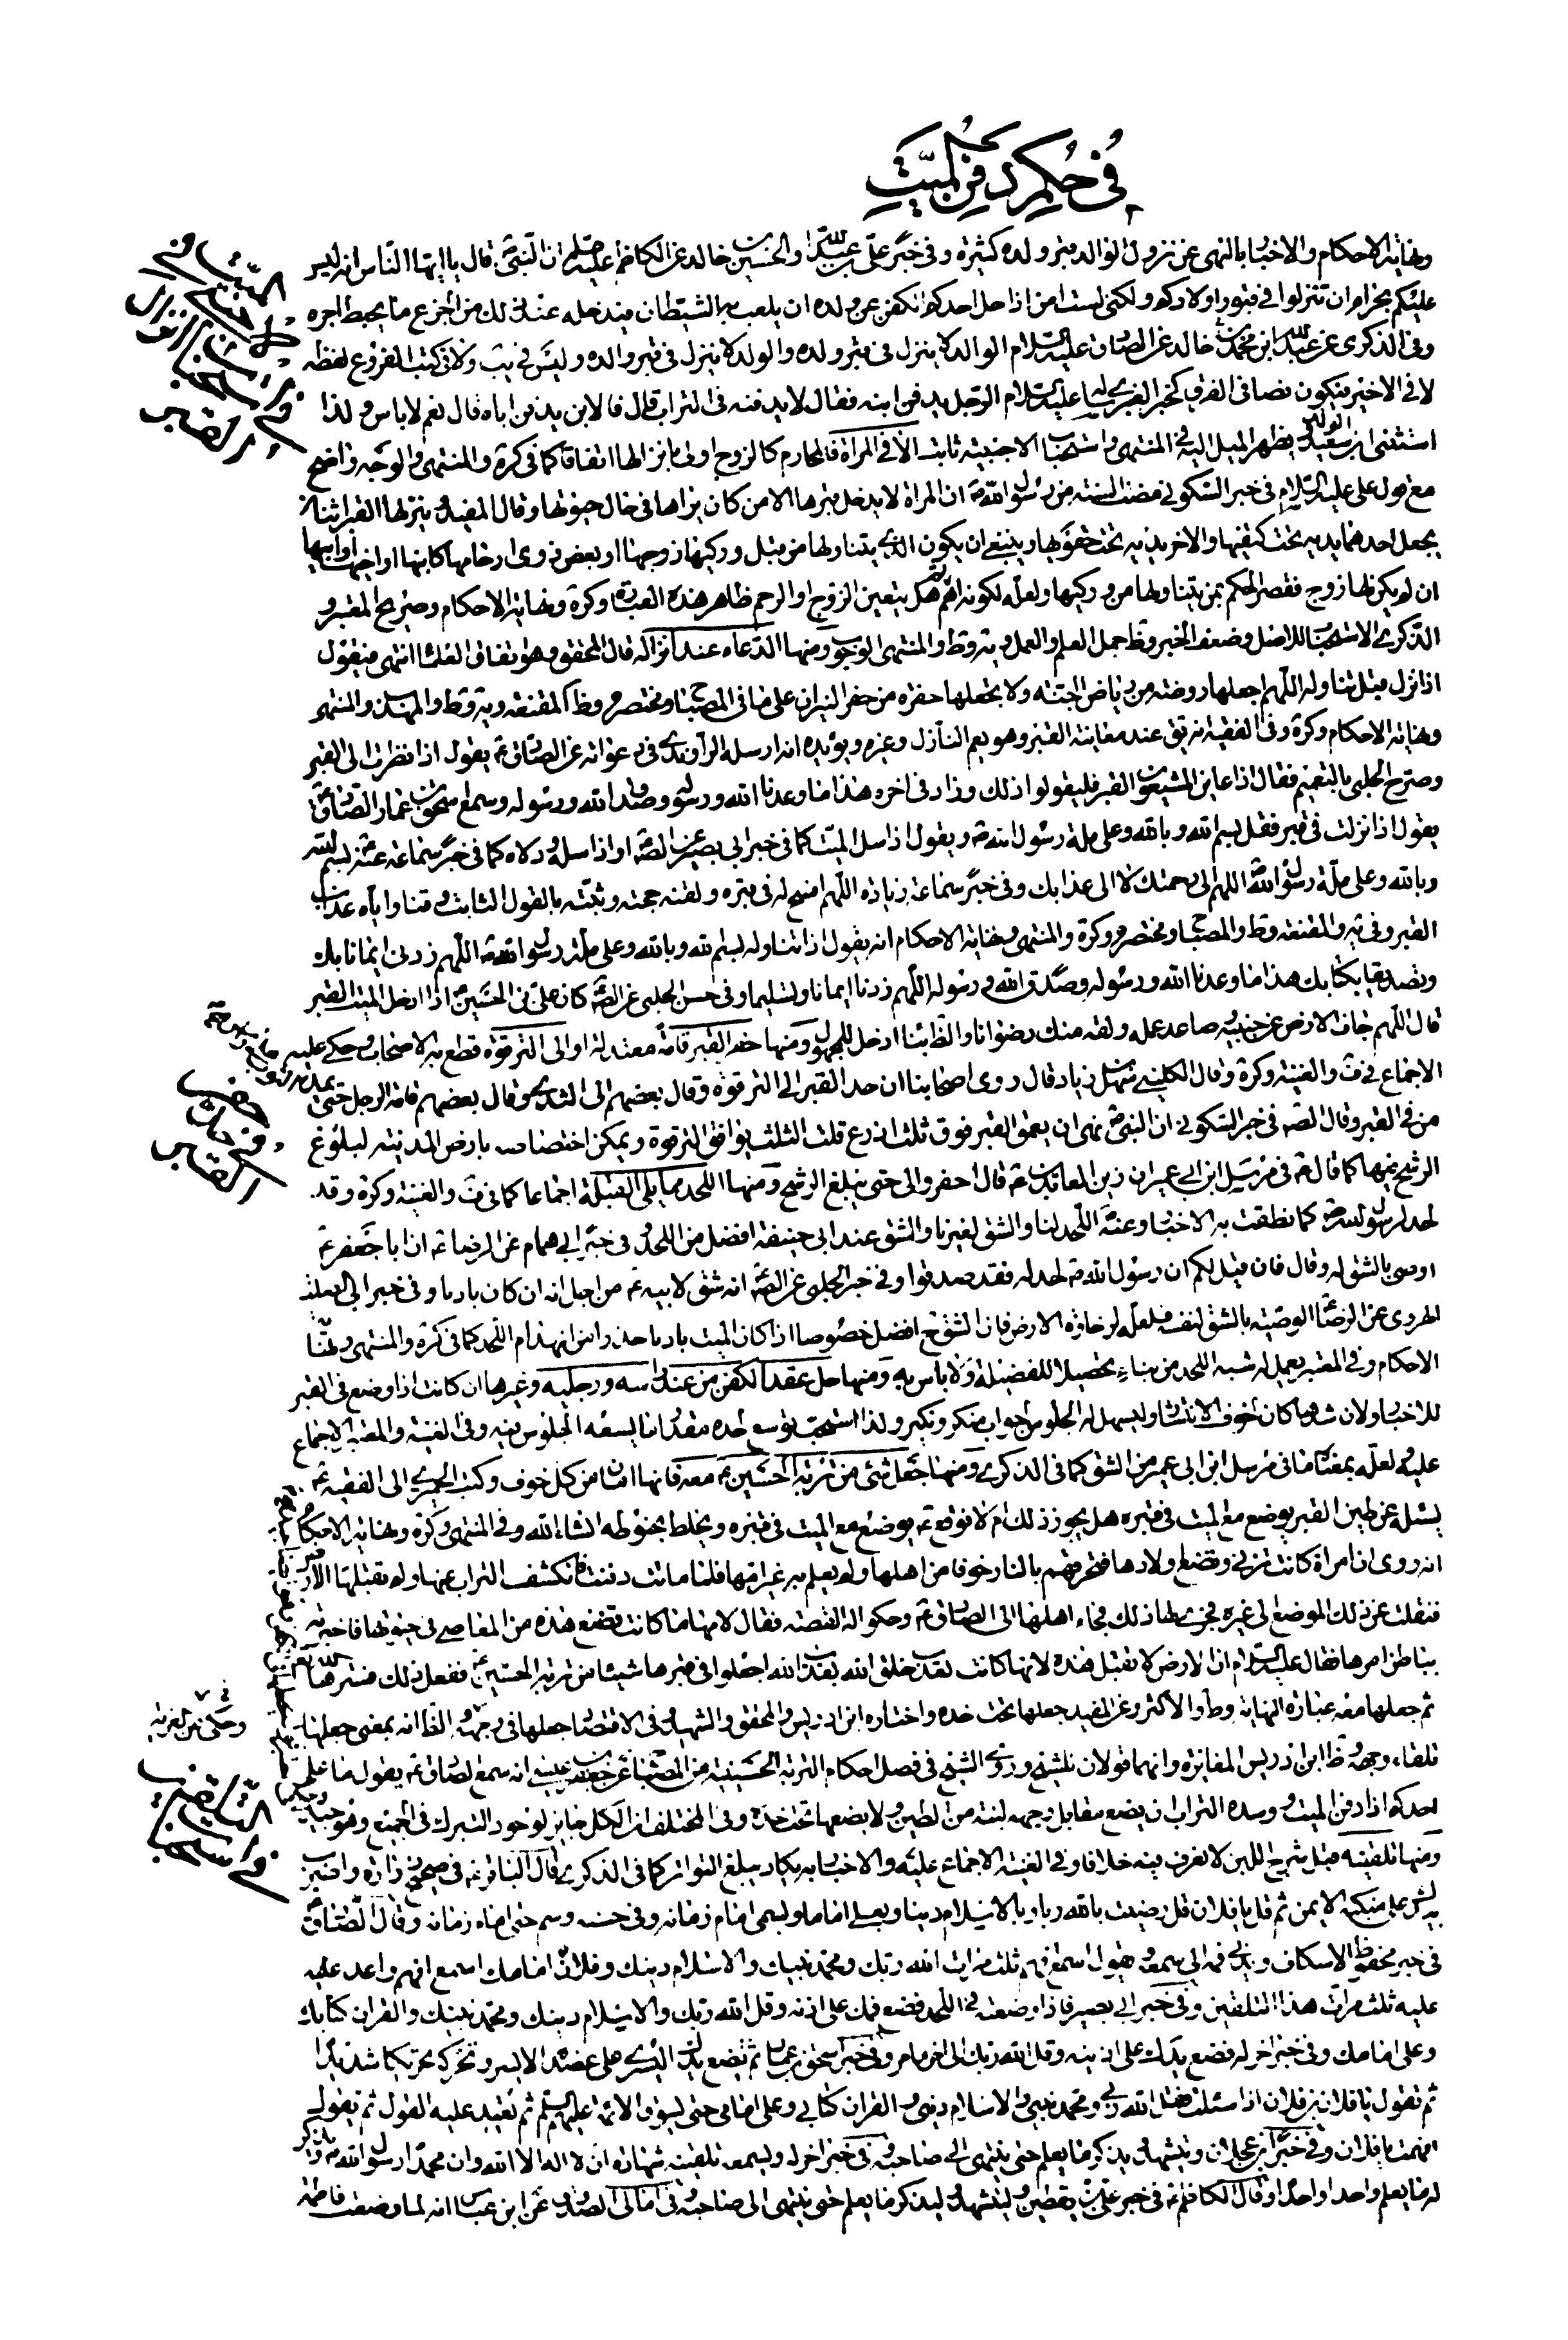 في حكم دفن الميت
ونهاية الاحكام والاخبار بالنهى عن نزول الوالد قبر ولده كثيرة وفى خبر على بن عبد الله والحسين بن خالد عن الكاظم عليه السلام ان النبى ص قال يا ايها الناس انه ليس
عليكم بحرام ان تنزلوا في قبور اولادكم ولكنى لست امن اذا حل احدكم الكفن عن ولده ان يلعب به الشيطان فيدخله عند ذلك من الجزع ما يحبط اجره
وفى الذكرى عن عبد الله ابن محمد بن خالد عن الصادق عليه السلام الوالد لا ينزل فى قبر ولده والولد لا ينزل فى قبر والده وليس في يب ولا فى كتب الفروع لفظة
لا في الاخير فيكون نصا فى الفرق كخبر العنبرى له عليه السلام الرجل يدفن ابنه فقال لا يدفنه فى التراب قال فالابن يدفن اباه قال نعم لا باس ولذا
استثنى ابن سعيد الولد ويظهر الميل اليه في المنتهى واستحباب الاجنبية ثابت الا في المراة فالمحارم كالزوج اولى بانزالها اتفاقا كما في كرة والمنتهى والوجه واضح
مع قول على عليه السلام فى خبر السكونى مضت السنة من رسول الله ص ان المراة لا يدخل قبرها الا من كان يراها فى حال حيوتها وقال المفيد ينزلها القبر اثنان
يجعل احدهما يديه تحت كتفيها والاخر يديه تحت حقويها وينبغى ان يكون الذى يتناولها من قبل وركيها زوجها او بعض ذوى ارحامها كابنها او اخيها او ابيها
ان لم يكن لها زوج فقصر الحكم بمن يتناولها من وركيها ولعله لكونه اهم ثم هل يتعين الزوج او الرحم ظاهر هذه العبارة وكرة ونهاية الاحكام وصريح المعتبر و
الذكرى الاستحباب للاصل وضعف الخبر وظ جمل العلم والعمل ويه وط والمنتهى الوجوب ومنها الدعاء عند انزاله قال المحقق وهو اتفاق العلماء انتهى فيقول
اذا نزل قبل تناوله اللهم اجعلها روضة من رياض الجنة ولا تجعلها حفرة من حفر النيران على ما فى المصباح ومختصره وظ المقنعة ويه وط والمهذب والمنتهى
ونهاية الاحكام وكرة وفى الفقيه انه يق عند معاينة القبر وهو يعم النازل وغيره ويؤيده انه ارسله الراوندى فى دعواته عن الصادق ع يقول اذا نظرت الى القبر
وصرح الحلبى بالتعميم فقال اذا عاين المشيعون القبر فليقولوا ذلك وزاد فى اخره هذا ما وعدنا الله ورسوله وصدق الله ورسوله وسمع اسحق بن عمار الصادق ع
يقول اذا نزلت فى قبر فقل بسم الله وبالله وعلى ملة رسول الله ص ويقول اذا سل الميت كما فى خبر ابى بصير عن الصادق ع او اذا سله ودلاه كما فى خبر سماعة عنه ع بسم الله
وبالله وعلى ملة رسول الله اللهم الى رحمتك لا الى عذابك وفى خبر سماعة زيادة اللهم افسح له فى قبره ولقنه حجته وثبته بالقول الثابت وقنا واياه عذاب
القبر وفى يه والمقنعة وط والمصباح ومختصره وكرة والمنتهى ونهاية الاحكام انه يقول اذا تناوله بسم الله وبالله وعلى ملة رسول الله ص اللهم زدنى ايمانا بك
وتصديقا بكتابك هذا ما وعدنا الله ورسوله وصدق الله ورسوله اللهم زدنا ايمانا وتسليما وفى حسن الحلبى عن الصادق كان على بن الحسين ع اذا ادخل الميت القبر
قال اللهم جاف الارض عن جنبيه وصاعد عمله ولقه منك رضوانا والظ بناء ادخل للمجهول ومنها حفر القبر قامة معتدلة او الى الترقوة قطع به الاصحاب وحكى عليه
الاجماع فى ف والغنية وكرة وقال الكلينى سهل بن زياد قال روى اصحابنا ان حد القبر الى الترقوة وقال بعضهم الى الثدى وقال بعضهم قامة الرجل حتى يمد الثوب على راس
من فى القبر وقال الصادق فى خبر السكونى ان النبى ص نهى ان يعمق القبر فوق ثلث اذرع قلت الثلث يوافق الترقوة ويمكن اختصاصه بارض المدينة لبلوغ
الرشح فيها كما قال ع فى مرسل ابن ابى عمير ان زين العابدين ع قال احفروا لى حتى يبلغ الرشح ومنها اللحد مما يلى القبلة اجماعا كما فى ف والغنية وكرة وقد
لحد لرسول الله ص كما نطقت به الاخبار وعنه ص اللحد لنا والشق لغيرنا والشق عند ابى حنيفة افضل من اللحد وفى خبر ابى همام عن الرضا ع ان ابا جعفر ع
اوصى بالشق له وقال فان قيل لكم ان رسول الله ص لحد له فقد صدقوا وفى خبر الحلبى عن الصادق ع انه شق لابيه ع من اجل انه كان بادنا وفى خبر ابى الصلت
الهروى عن الرضا ع الوصية بالشق لنفسه فلعله لرخاوة الارض فان الشق ح افضل خصوصا اذا كان الميت بادنا حذرا من انهدام اللحد كما فى كرة والمنتهى ونهاية
الاحكام وفى المعتبر يعمل له شبه اللحد من بناء تحصيلا للفضيلة ولا باس به ومنها حل عقد الكفن من عند راسه ورجليه وغيرها ان كانت اذا وضع فى القبر
للاخبار ولان شدها كان لخوف الانتشار وليسهل له الجلوس لجواب منكر ونكير ولذا استحب توسع لحده مقدار ما يسعه الجلوس فيه وفى الغنية والمعتبر الاجماع
عليه ولعله بمعناه ما فى مرسل ابن ابى عمير من الشق كما فى الذكرى ومنها جعل شئ من تربة الحسين ع معه فانها امان من كل خوف وكتب الحميرى الى الفقيه ع
يسئله عن طين القبر يوضع مع الميت فى قبره هل يجوز ذلك ام لا فوقع ع يوضع مع الميت فى قبره ويخلط بحنوطه انشاء الله وفى المنتهى وكرة ونهاية الاحكام
انه روى ان امراة كانت تزنى وتضع اولادها فتحرقهم بالنار خوفا من اهلها ولم يعلم به غير امها فلما ماتت دفنت فانكشف التراب عنها ولم تقبلها الارض
فنقلت عن ذلك الموضع الى غيره فجرى لها ذلك فجاء اهلها الى الصادق ع وحكوا له القصة فقال لامها ما كانت تصنع هذه من المعاصى فى حيوتها فاخبرته
بباطن امرها فقال عليه السلام ان الارض لا تقبل هذه لانها كانت تعذب خلق الله بعذاب الله اجعلوا فى قبرها شيئا من تربة الحسين ع ففعل ذلك فسترها الله تعالى
ثم جعلها معه عبارة النهاية وط والاكثر وعن المفيد جعلها تحت خده واختاره ابن ادريس والمحقق والشهيد وفى الاقتصاد جعلها فى وجهه والظ انه بمعنى جعلها
تلقاء وجهه وظ ابن ادريس المغايرة وانهما قولان للشيخ وروى الشيخ فى فصل احكام التربة الحسينية من المصباح عن جعفر بن عيسى انه سمع الصادق ع يقول ما على
احدكم اذا دفن الميت ووسده التراب ان يضع مقابل وجهه لبنة من الطين ولا يضعها تحت خده وفى المختلف ان الكل جايز لوجود التبرك فى الجميع وهو جيد
ومنها تلقينه قبل شرج اللبن لا نعرف فيه خلافا وفى الغنية الاجماع عليه والاخبار به يكاد يبلغ التواتر كما فى الذكرى قال الباقر ع فى صحيح زرارة واضرب
بيدك على منكبه الايمن ثم قل يا فلان قل رضيت بالله ربا وبالاسلام دينا وبعلى اماما ويسمى امام زمانه وفى حسنه وسم حتى امام زمانه وقال الصادق
فى خبر محفوظ الاسكاف ويدنى فمه الى سمعه ويقول اسمع افهم ثلث مرات الله ربك ومحمد نبيك والاسلام دينك وفلان امامك اسمع افهم واعد عليه
عليه ثلث مرات هذا التلقين وفى خبر ابى بصير فاذا وضعته فى اللحد فضع فمك على اذنه وقل الله ربك والاسلام دينك ومحمد نبيك والقران كتابك
وعلى امامك وفى خبر اخر له فضع يدك على اذنه وقل الله ربك الى اخر ما مر وفى خبر اسحق بن عمار ثم تضع يدك اليسرى على عضده الايسر وتحركه تحريكا شديدا
ثم تقول يا فلان بن فلان اذا سئلت فقل الله ربى ومحمد نبيى والاسلام دينى والقران كتابى وعلى امامى حتى تسوق الائمة عليهم السلم ثم تعيد عليه القول ثم تقول
افهمت يا فلان وفى خبر ابن عجلان ويتشهد ويذكر ما يعلم حتى ينتهى الى صاحبه وفى خبر اخر له ويسمعه تلقينه شهادة ان لا اله الا الله وان محمدا رسول الله ص ويذكر
له ما يعلم واحدا واحدا وقال الكاظم ع فى خبر على بن يقطين وليتشهد وليذكر ما يعلم حتى ينتهى الى صاحبه وفى امالى الصدوق عن ابن عباس انه لما وضعت فاطمة